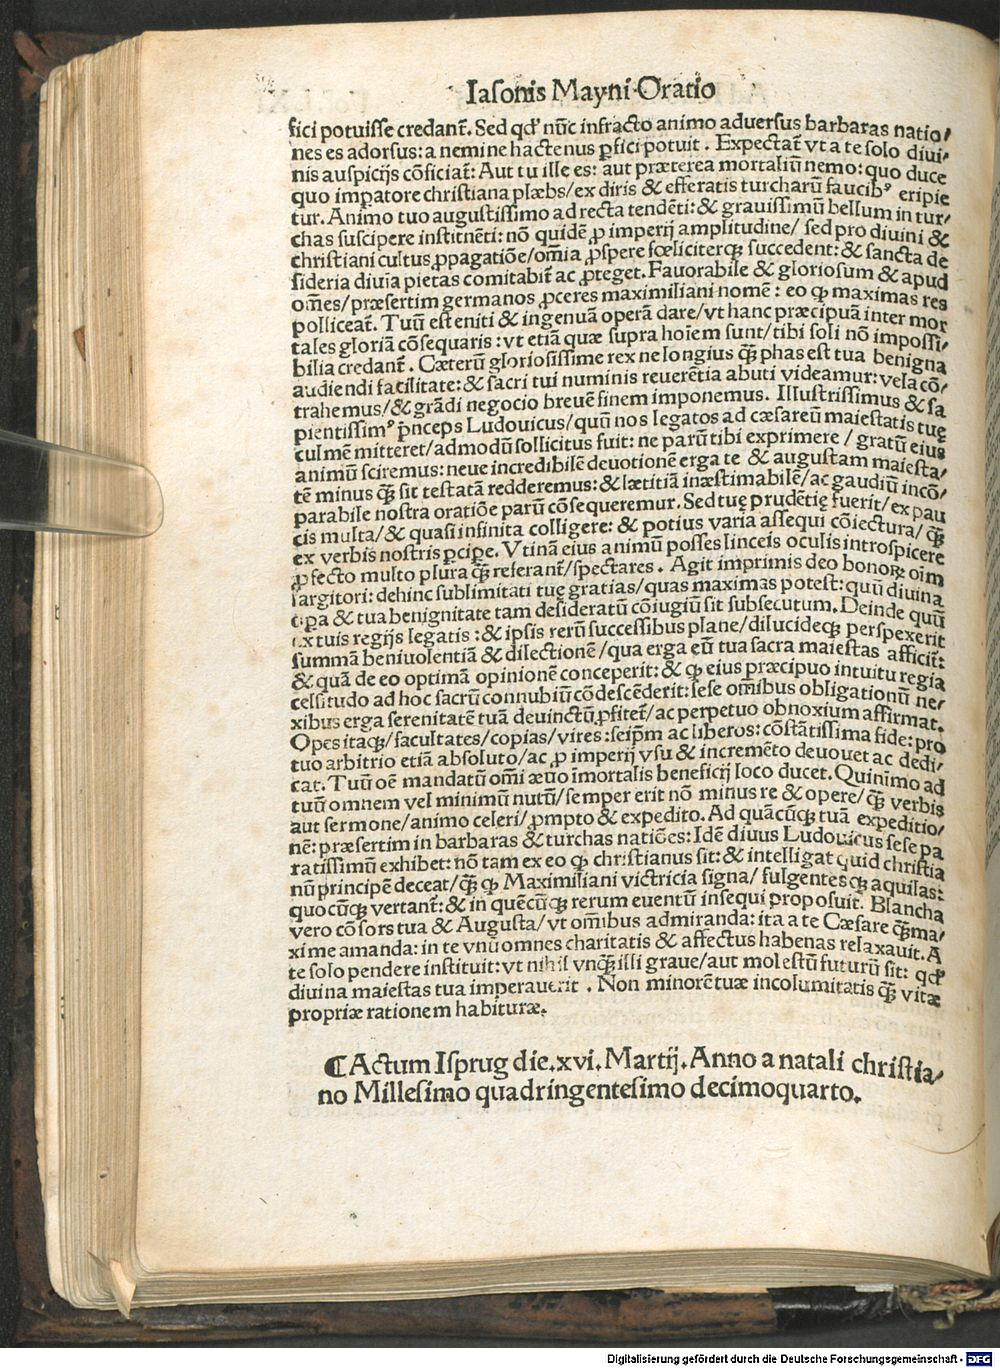 Iasonis Mayni Oratio
fici potuisse credant̃. Sed qđ nũc infracto animo adversus barbaras natio/
nes es adorsus: a nemine hactenus ꝑfici potuit. Expectat̃ vt a te solo divi/
nis auspicijs cõficiat̃: Aut tu ille es: aut præterea mortaliũ nemo: quo duce
quo imꝑatore christiana plæbs/ex diris & efferatis turcharũ faucibꝰ eripie
tur. Animo tuo augustissimo ad recta tendẽti: & grauissimũ bellum in tur/
chas suscipere institnẽti: nõ quidẽ ꝓ imperij amplitudine/ sed pro diuini &
christiani cultus ꝓpagatiõe/om̃ia ꝓspere fœliciterqꝫ succedent: & sancta de
sideria diuia pietas comitabit̃ ac ꝓteget. Fauorabile & gloriosum & apud
om̃es/præsertim germanos ꝓceres maximiliani nomẽ: eo ꝙ maximas res
polliceat̃. Tuũ est eniti & ingenuã operã dare/vt hanc præcipuã inter mor
tales gloriã cõsequaris: vt etiã quæ supra hoĩem sunt/tibi soli nõ impossi/
bilia credant̃. Cæterũ gloriosissime rex ne longius q̃ꝫ phas est tua benigna
audiendi facilitate: & sacri tui numinis reuerẽtia abuti videamur: vela cõ/
trahemus/& grãdi negocio breuẽ finem imponemus. Illustrissimus & sa
pientissimꝰ p̃nceps Ludouicus/quũ nos legatos ad cæsareũ maiestatis tuę
culmẽ mitteret/admodũ sollicitus fuit: ne parũ tibi exprimere/ gratũ eius
animũ sciremus: neue incredibilẽ deuotionẽ erga te & augustam maiesta/
tẽ minus q̃ꝫ sit testatã redderemus: & lætitiã inæstimabilẽ/ac gaudiũ incõ/
parabile nostra oratiõe parũ cõsequeremur. Sed tuę prudẽtię fuerit/ex pau
cis multa/& quasi infinita colligere: & potius varia assequi cõiectura/q̃ꝫ
ex verbis nostris ꝑcipe. Vtinã eius animũ posses linceis oculis introspicere
ꝓfecto multo plura q̃ꝫ referant̃/spectares. Agit imprimis deo bonoꝝ oĩm
largitori: dehinc sublimitati tuę gratias/quas maximas potest: quũ diuina
& tua benignitate tam desideratũ cõiugiũ sit subsecutum. Deinde quũ
ex tuis regijs legatis: & ipsis rerũ successibus plane/dilucideqꝫ perspexerit
summã beniuolentiã & dilectionẽ/qua erga eũ tua sacra maiestas afficit̃:
& quã de eo optimã opinionẽ conceperit: & ꝙ eius præcipuo intuitu regia
celsitudo ad hoc sacrũ connubiũ cõdescẽderit: sese om̃ibus obligationũ ne/
xibus erga serenitatẽ tuã deuinctũ ꝓfitet̃/ac perpetuo obnoxium affirmat.
Opes itaqꝫ/facultates/copias/vires: seip̃m ac liberos: cõstãtissima fide: pro
tuo arbitrio etiã absoluto/ac ꝓ imperij vsu & incremẽto deuouet ac dedi/
cat. Tuũ oẽ mandatũ om̃i æuo ĩmortalis beneficij loco ducet. Quinĩmo ad
tuũ omnem vel minimũ nutũ/semper erit nõ minus re & opere/q̃ꝫ verbis
aut sermone/animo celeri/ꝓmpto & expedito. Ad quãcũqꝫ tuã expeditio/
nẽ: præsertim in barbaras & turchas natiões: Idẽ diuus Ludouicus sese pa
ratissimũ exhibet: nõ tam ex eo ꝙ christianus sit: & intelligat quid christia
nũ principẽ deceat/q̃ꝫ ꝙ Maximiliani victricia signa/ fulgentesqꝫ aquilas:
quocũqꝫ vertant̃: & in quẽcũqꝫ rerum euentũ insequi proposuit. Blancha
vero cõsors tua & Augusta/vt om̃ibus admiranda: ita a te Cæsare q̃ꝫma/
xime amanda: in te vnũ omnes charitatis & affectus habenas relaxauit. A
te solo pendere instituit: vt nihil vnq̃ꝫ illi graue/aut molestũ futurũ sit: qđ
diuina maiestas tua imperauerit. Non minorẽ tuæ incolumitatis q̃ꝫ vitæ
propriæ rationem habituræ.
¶ Actum Isprug die.xvi. Martij. Anno a natali christia/
no Millesimo quadringentesimo decimoquarto.
Digitalisierung gefördert durch die Deutsche Forschungsgemeinschaft - DFG